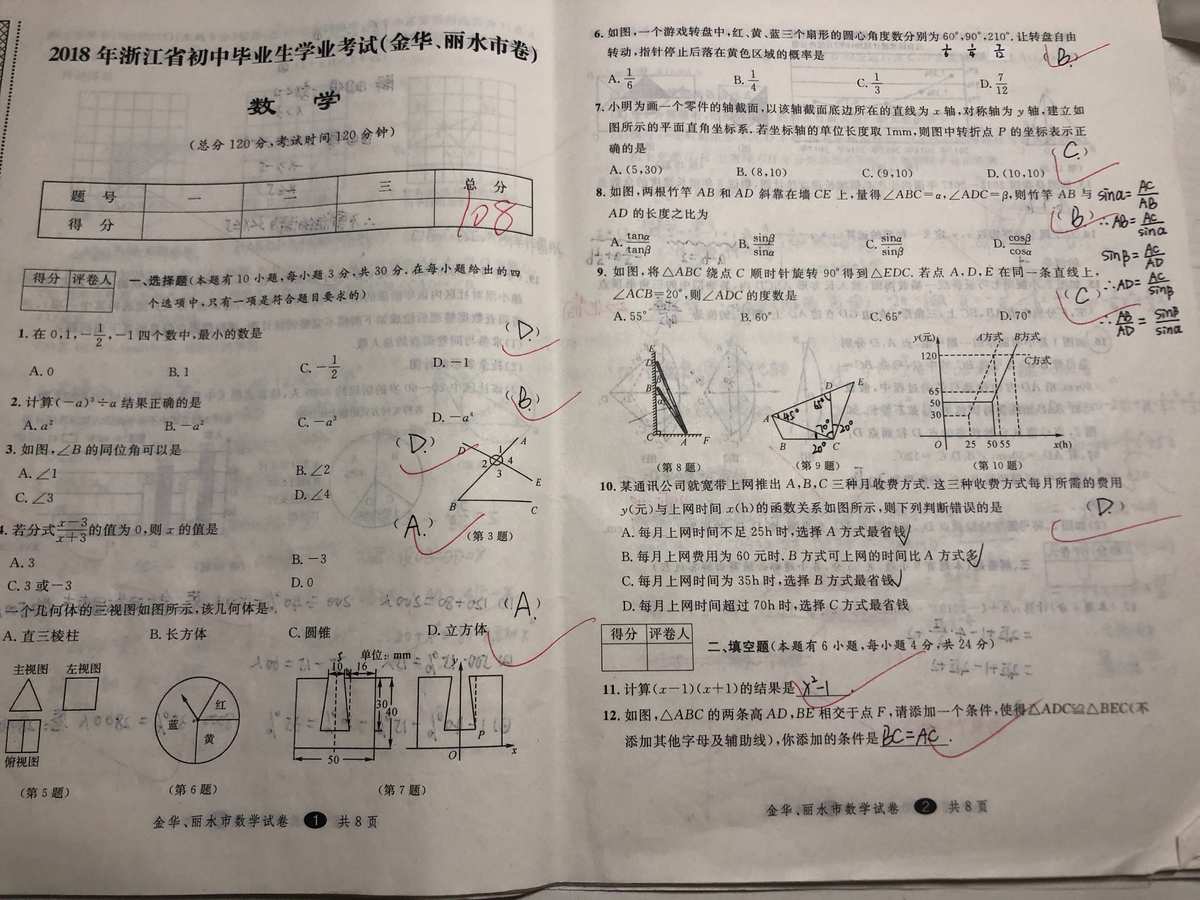 2018年浙江省初中毕业生学业考试(金华、丽水市卷)
数 学
(总分120分,考试时间120分钟)
题 号 一 二 三 总 分
得 分 108
得分 评卷人
一、选择题(本题有10小题,每小题3分,共30分.在每小题给出的四
个选项中,只有一项是符合题目要求的)
1.在0,1,-1/2,-1四个数中,最小的数是 (D.)
A.0 B.1 C.-1/2 D.-1
2.计算(-a)³÷a结果正确的是 (B.)
A.a² B.-a² C.-a³ D.-a⁴
3.如图,∠B的同位角可以是 (D.)
A.∠1 B.∠2
C.∠3 D.∠4
D A 1 2 4 3 E B C
(第3题)
4.若分式(x-3)/(x+3)的值为0,则x的值是 (A.)
A.3 B.-3
C.3或-3 D.0
一个几何体的三视图如图所示,该几何体是 (A.)
A.直三棱柱 B.长方体 C.圆锥 D.立方体
主视图 左视图
俯视图
(第5题)
红 蓝 黄
(第6题)
单位:mm
5
10 16
30 40
50
y P O x
(第7题)
金华、丽水市数学试卷 1 共8页
6.如图,一个游戏转盘中,红、黄、蓝三个扇形的圆心角度数分别为60°,90°,210°.让转盘自由
1/6 1/4 7/12
转动,指针停止后落在黄色区域的概率是 (B.)
A.1/6 B.1/4 C.1/3 D.7/12
7.小明为画一个零件的轴截面,以该轴截面底边所在的直线为x轴,对称轴为y轴,建立如
图所示的平面直角坐标系.若坐标轴的单位长度取1mm,则图中转折点P的坐标表示正
确的是 (C.)
A.(5,30) B.(8,10) C.(9,10) D.(10,10)
8.如图,两根竹竿AB和AD斜靠在墙CE上,量得∠ABC=α,∠ADC=β,则竹竿AB与
AD的长度之比为 (B.)
A.tanα/tanβ B.sinβ/sinα C.sinα/sinβ D.cosβ/cosα
sinα=AC/AB
∴AB=AC/sinα
sinβ=AC/AD
∴AD=AC/sinβ
∴AB/AD=sinβ/sinα
9.如图,将△ABC绕点C顺时针旋转90°得到△EDC.若点A,D,E在同一条直线上,
∠ACB=20°,则∠ADC的度数是 (C.)
A.55° B.60° C.65° D.70°
E D B C A F
(第8题)
A D E B C 45° 65° 70° 20° 20°
(第9题)
y(元) A方式 B方式 C方式
120
65
50
30
O 25 50 55 x(h)
(第10题)
10.某通讯公司就宽带上网推出A,B,C三种月收费方式.这三种收费方式每月所需的费用
y(元)与上网时间x(h)的函数关系如图所示,则下列判断错误的是 (D.)
A.每月上网时间不足25h时,选择A方式最省钱√
B.每月上网费用为60元时,B方式可上网的时间比A方式多√
C.每月上网时间为35h时,选择B方式最省钱√
D.每月上网时间超过70h时,选择C方式最省钱
得分 评卷人
二、填空题(本题有6小题,每小题4分,共24分)
11.计算(x-1)(x+1)的结果是x²-1.
12.如图,△ABC的两条高AD,BE相交于点F,请添加一个条件,使得△ADC≌△BEC(不
添加其他字母及辅助线),你添加的条件是BC=AC.
金华、丽水市数学试卷 2 共8页